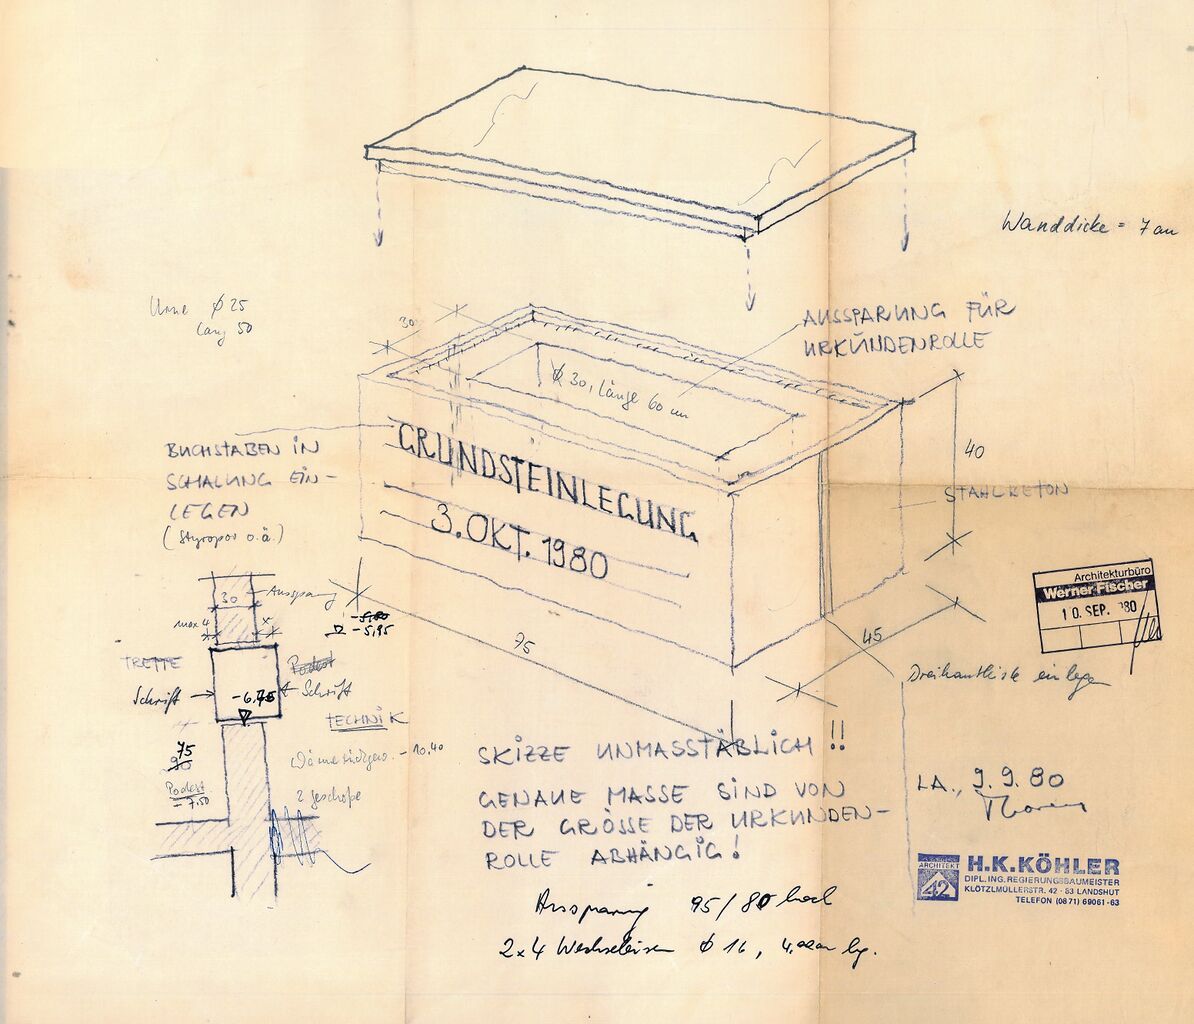 Wanddicke = 7 cm
Urne ∅ 25
lang 50
30
AUSSPARUNG FÜR
URKUNDENROLLE
∅ 30, Länge 60 cm
BUCHSTABEN IN
SCHALUNG EIN-
LEGEN
(Styropor o.ä.)
GRUNDSTEINLEGUNG
3. OKT. 1980
40
STAHLBETON
Architekturbüro
Werner Fischer
10. SEP. 80
30
Aussparung
max 4
-5,80
-5,95
75
45
Dreikantleiste einlegen
TREPPE
Podest
Schrift
-6,75
Schrift
TECHNIK
-10.40
75
90
Podest
-7,50
2 geschoße
SKIZZE UNMASSTÄBLICH!!
GENAUE MASSE SIND VON
DER GRÖSSE DER URKUNDEN-
ROLLE ABHÄNGIG!
LA., 9.9.80
ARCHITEKT
42
H.K.KÖHLER
DIPL.ING.REGIERUNGSBAUMEISTER
KLÖTZLMÜLLERSTR. 42 · 83 LANDSHUT
TELEFON (0871) 69061-63
Aussparung 95/80 hoch
2x4 Wechseleisen ∅ 16, lg.